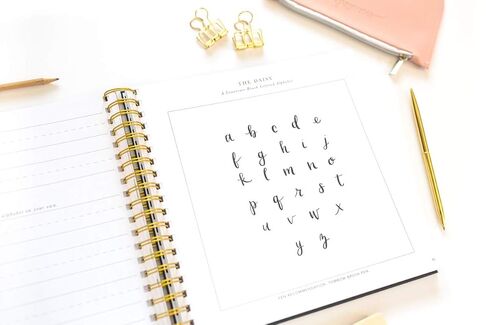 alphabet on your own.
THE DAISY
A Signature Brush Lettered Alphabet
a b c d e
f g h i j
k l m n o
p q r s t
u v w x
y z
PEN RECOMMENDATION: TOMBOW BRUSH PEN